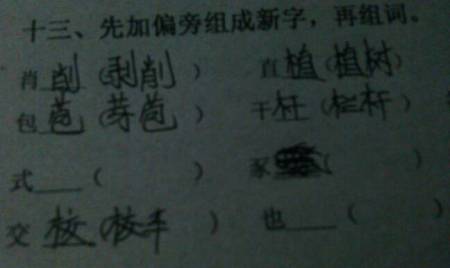 十三、先加偏旁组成新字，再组词。
肖 削 (剥削) 直 植 (植树)
包 苞 (芽苞) 干 杆 (栏杆)
式___( ) 豕 ( )
交 校 (校车) 也___( )